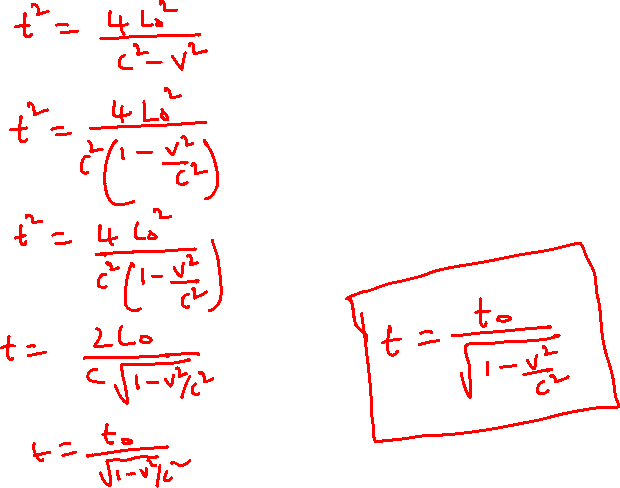 t² = 4L₀² / (c² - v²)
t² = 4L₀² / (c² (1 - v²/c²))
t² = 4L₀² / (c² (1 - v²/c²))
t = 2L₀ / (c √(1 - v²/c²))
t = t₀ / √(1 - v²/c²)
t = t₀ / √(1 - v²/c²)